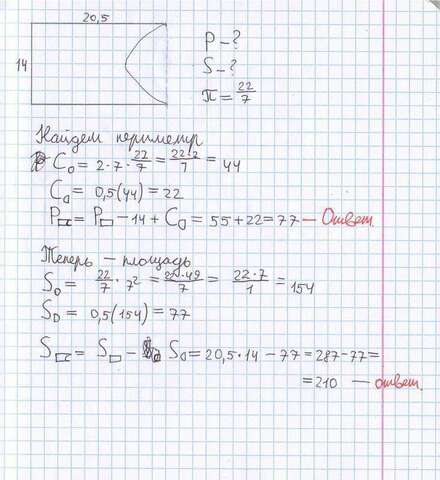 20,5
14
P - ?
S - ?
π = 22/7
Найдем периметр
C○ = 2 · 7 · 22/7 = 22·2/7 = 44
C○ = 0,5(44) = 22
P = P□ - 14 + C○ = 55 + 22 = 77 — Ответ.
Теперь — площадь
S○ = 22/7 · 7² = 22·49/7 = 22·7/1 = 154
SD = 0,5(154) = 77
S = S□ - SD = 20,5 · 14 - 77 = 287 - 77 =
= 210 — ответ.